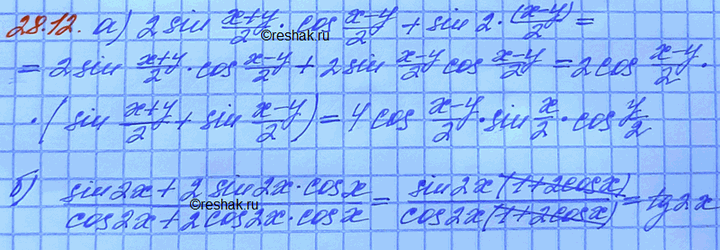 28.12. а) 2 sin (x+y)/2 · cos (x-y)/2 + sin 2 · (x-y)/2 =
= 2 sin (x+y)/2 · cos (x-y)/2 + 2 sin (x-y)/2 cos (x-y)/2 = 2 cos (x-y)/2 ·
· (sin (x+y)/2 + sin (x-y)/2) = 4 cos (x-y)/2 · sin x/2 · cos y/2
б) (sin 2x + 2 sin 2x · cos x)/(cos 2x + 2 cos 2x · cos x) = (sin 2x (1 + 2 cos x))/(cos 2x (1 + 2 cos x)) = tg 2x